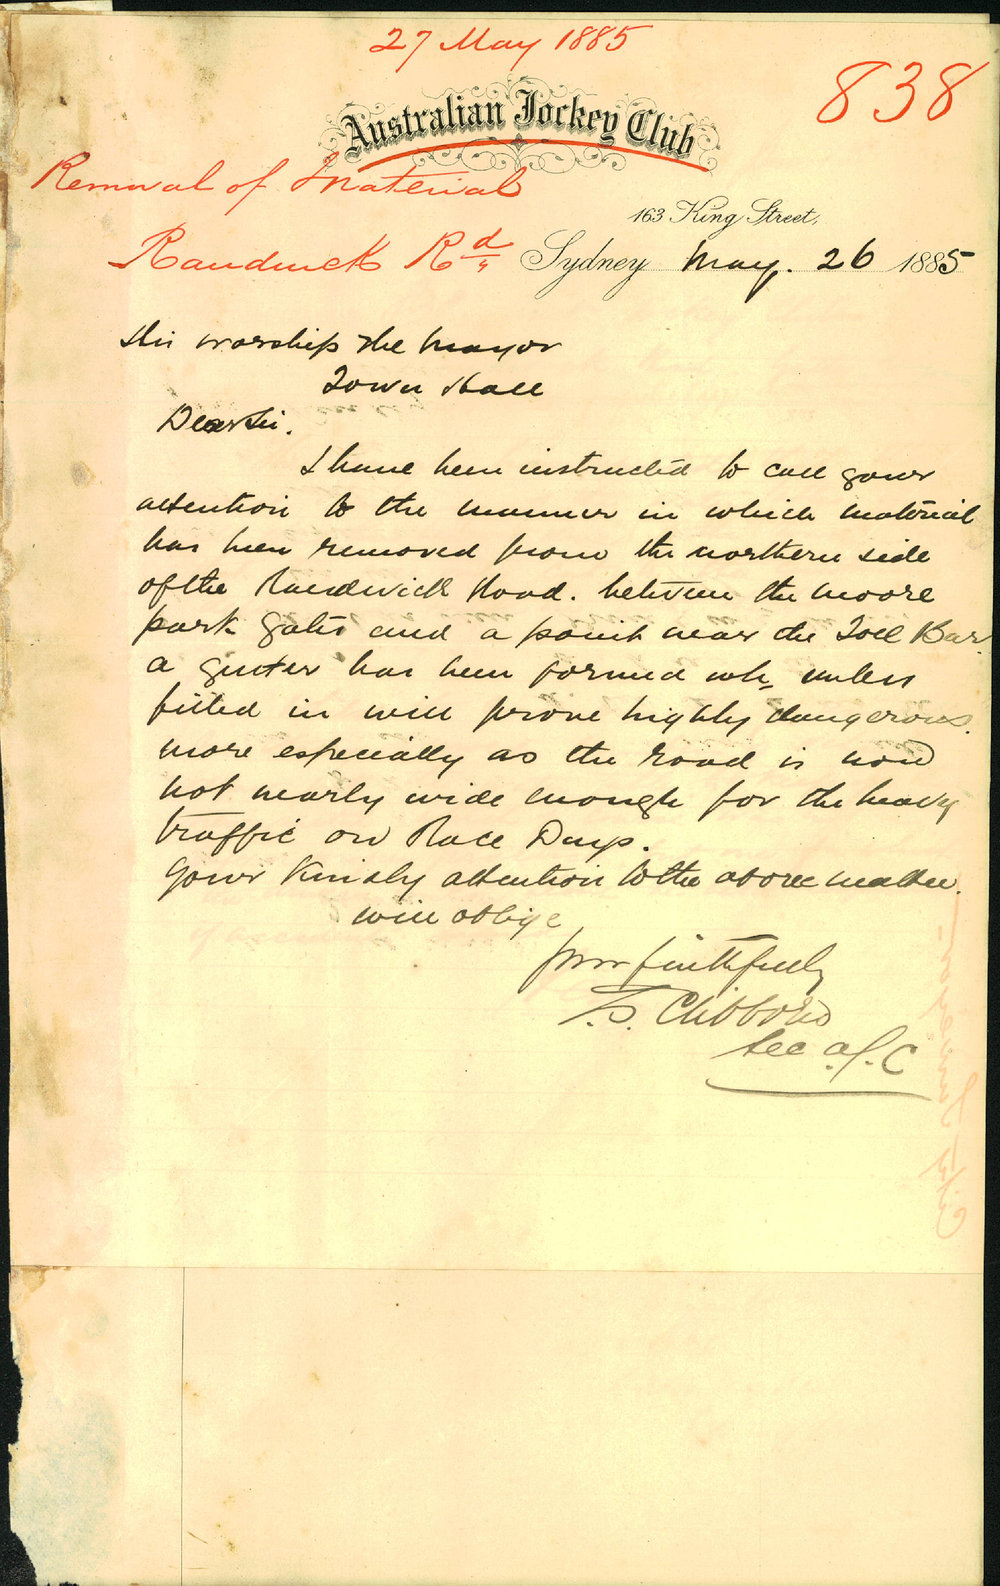 27 May 1885
838
Australian Jockey Club
Removal of Material
163 King Street,
Randwick Rd
Sydney May. 26 1885
His worship the Mayor
Town Hall
Dear Sir.
I have been instructed to call your
attention to the manner in which material
has been removed from the northern side
of the Randwick Road. between the Moore
park gates and a point near the Toll Bar.
a gutter has been formed wh. unless
filled in will prove highly dangerous.
more especially as the road is now
not nearly wide enough for the heavy
traffic on Race Days.
Your kindly attention to the above matter.
will oblige
Yours faithfully
T. S. Clibborn
Sec A.J.C